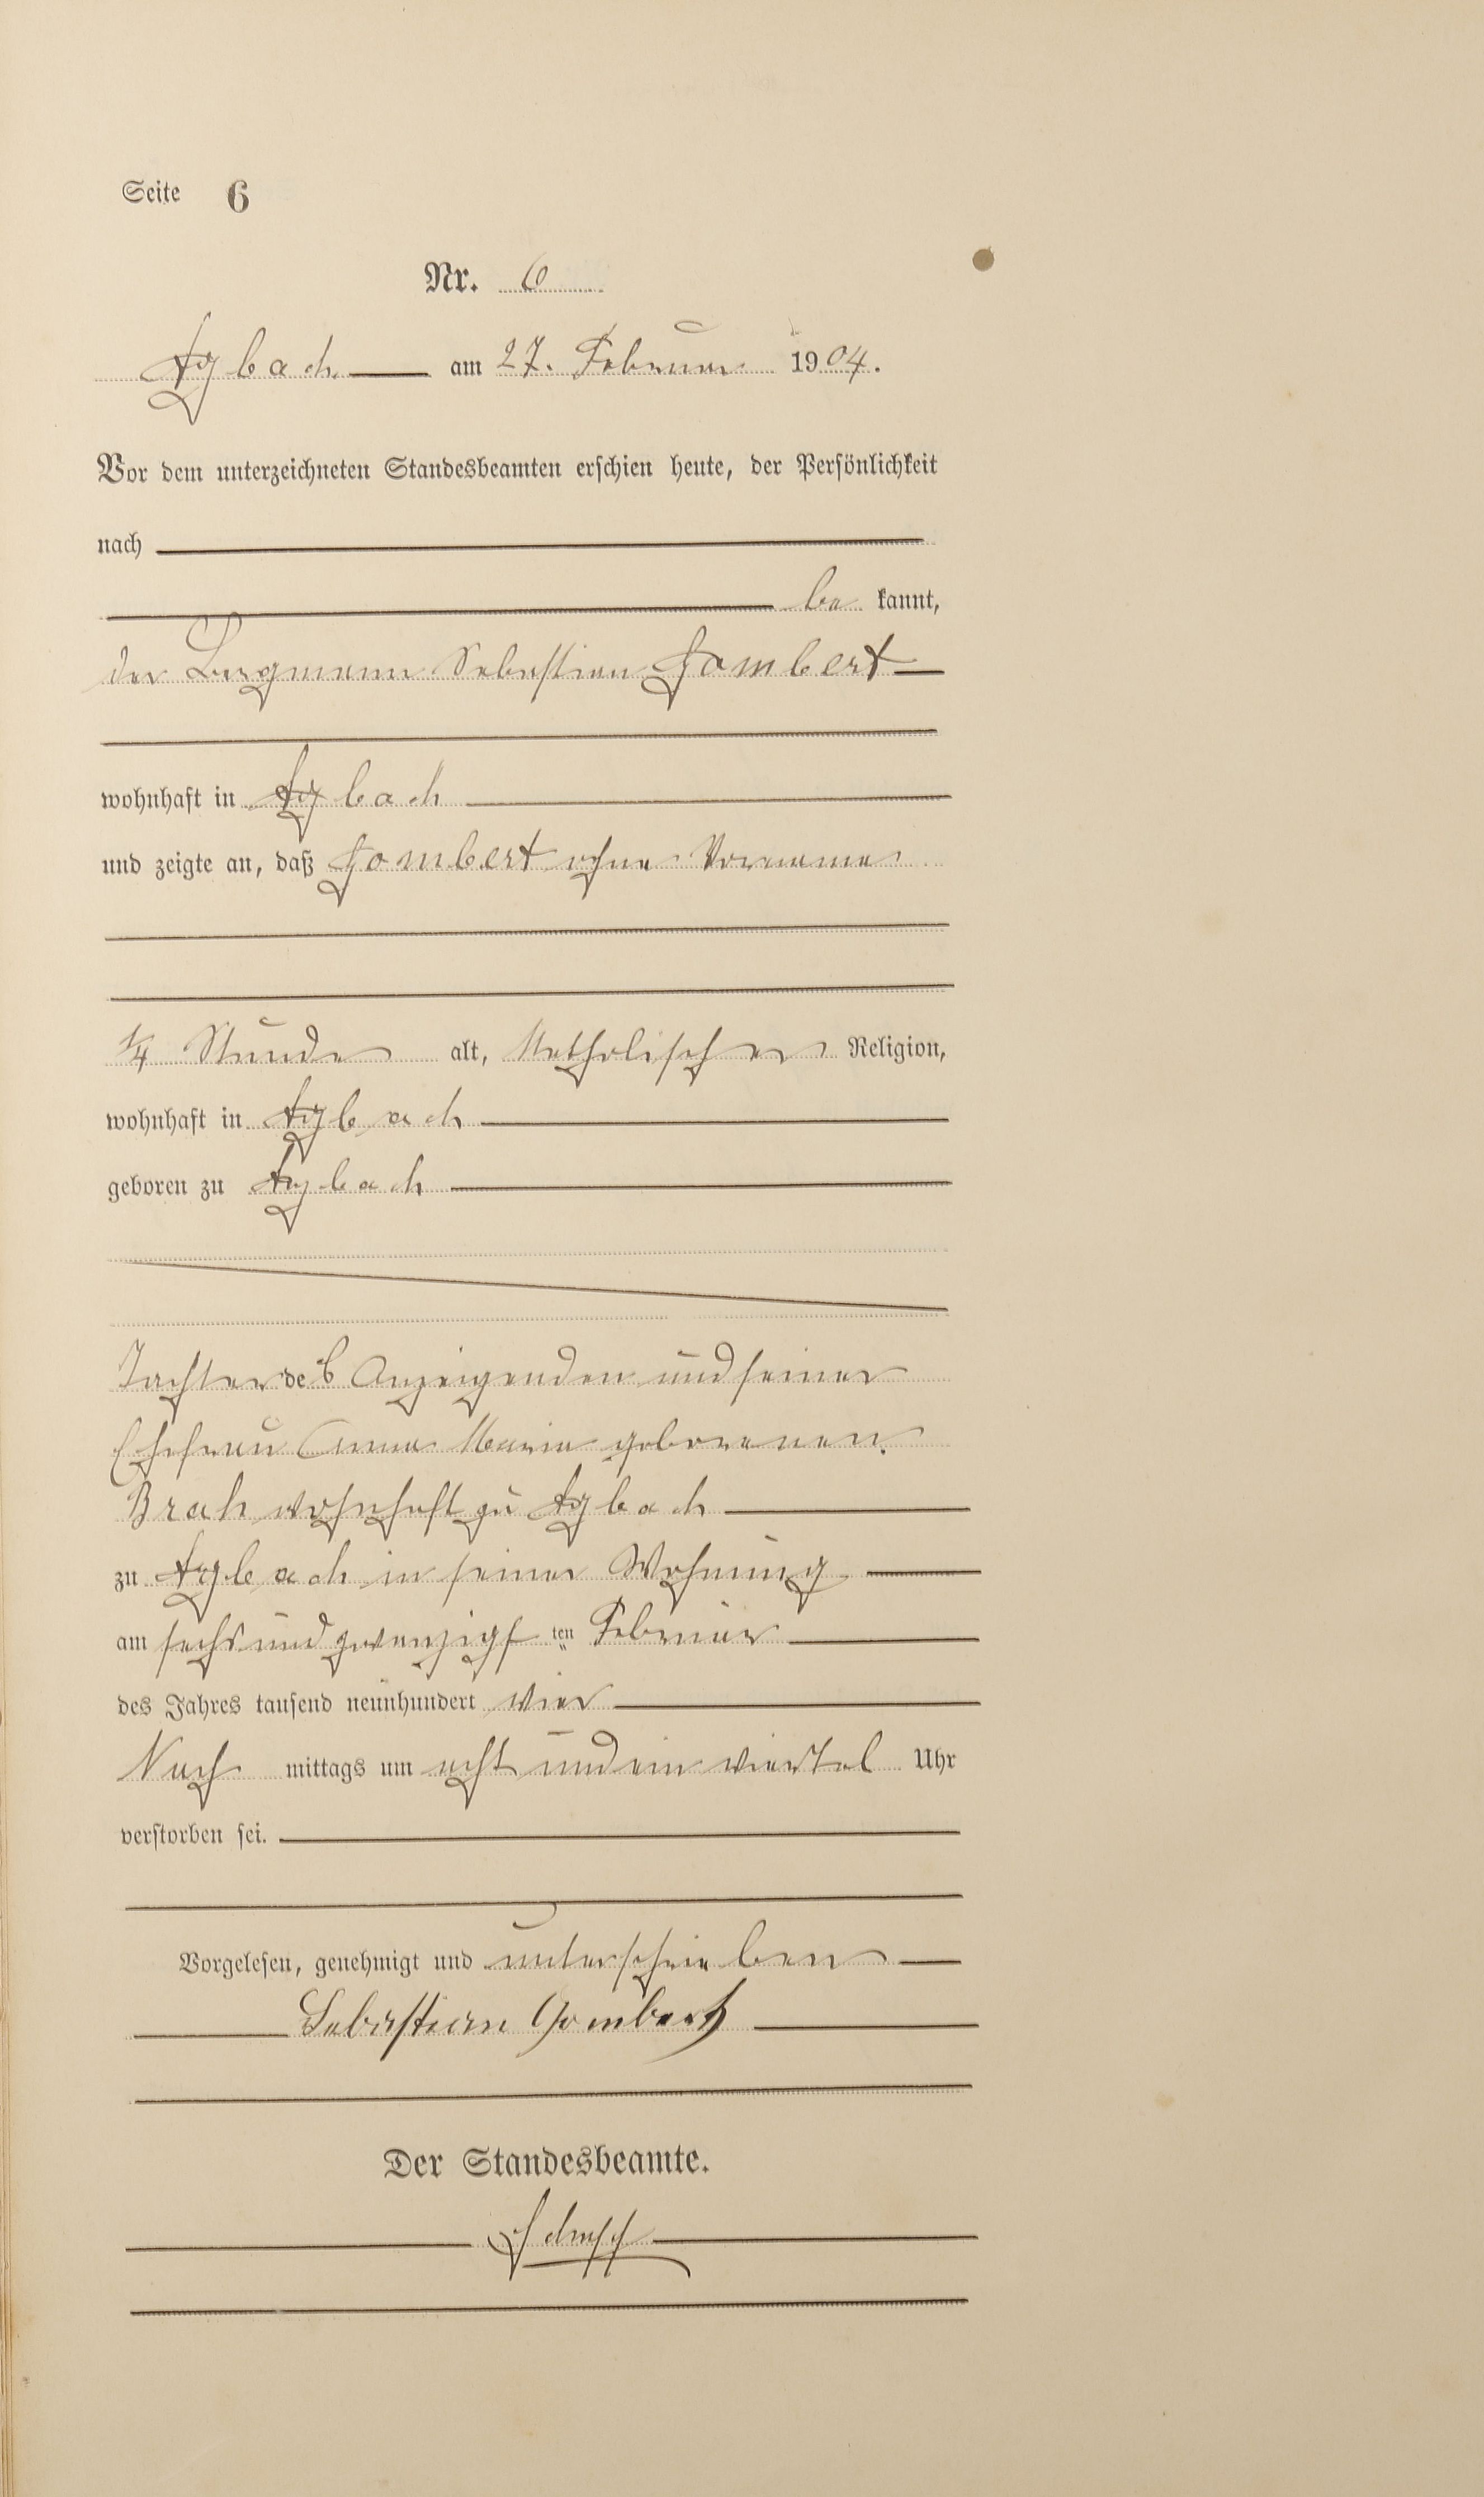 Seite 6
Nr. 6
Azbach am 27. Februar 1904.
Vor dem unterzeichneten Standesbeamten erschien heute, der Persönlichkeit
nach
be kannt,
der Bergmann Sebastian Gombert
wohnhaft in Azbach
und zeigte an, daß Gombert ohne Vorname
1/4 Stunde alt, Katholischer Religion,
wohnhaft in Azbach
geboren zu Azbach
Tochter des Anzeigenden und seiner
Ehefrau Anna Maria geborenen
Brah wohnhaft zu Azbach
zu Azbach in seiner Wohnung
am sechsundzwanzigsten Februar
des Jahres tausend neunhundert vier
Nach mittags um acht und ein viertel Uhr
verstorben sei.
Vorgelesen, genehmigt und unterschrieben
Sebastian Gombert
Der Standesbeamte.